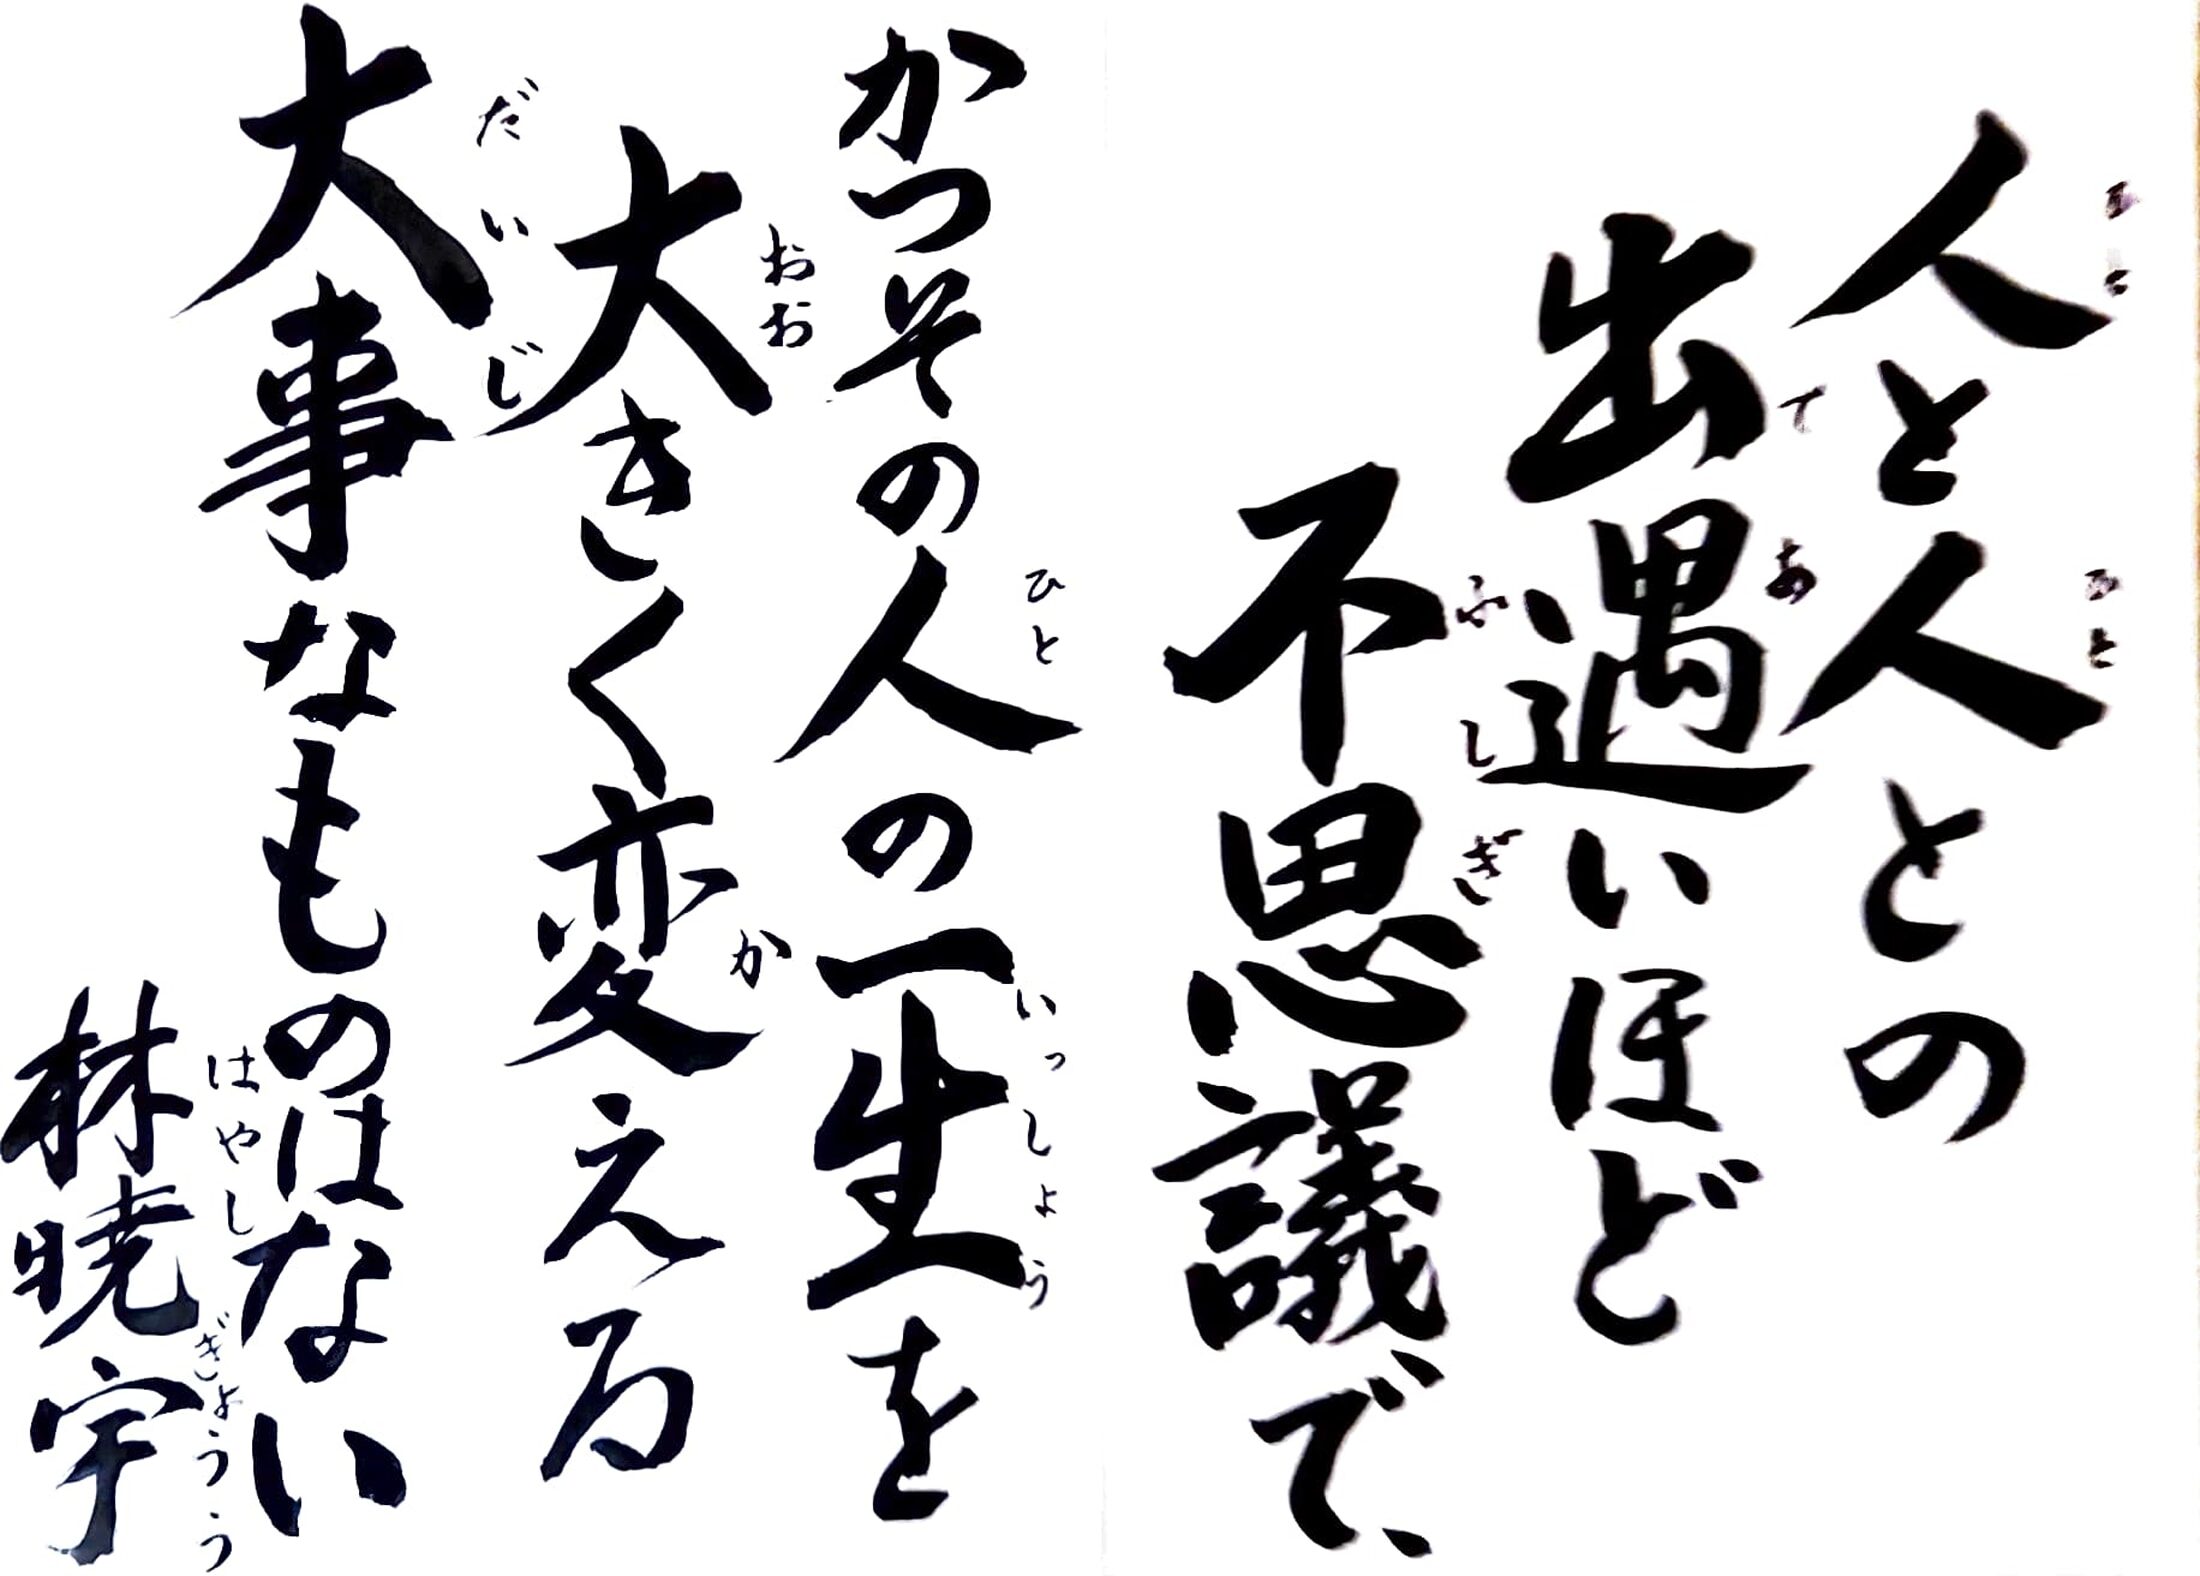 人と人との
出遇いほど
不思議で、
かつその人の一生を
大きく変える
大事なものはない
林暁宇
ひと
ひと
で
あ
ふしぎ
ひと
いっしょう
おお
か
だいじ
はやし
ぎょうう